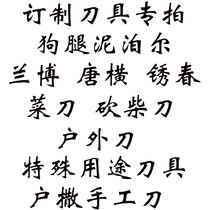 订制刀具专拍
狗腿泥泊尔
兰博 唐横 锈春
菜刀 砍柴刀
户外刀
特殊用途刀具
户撒手工刀